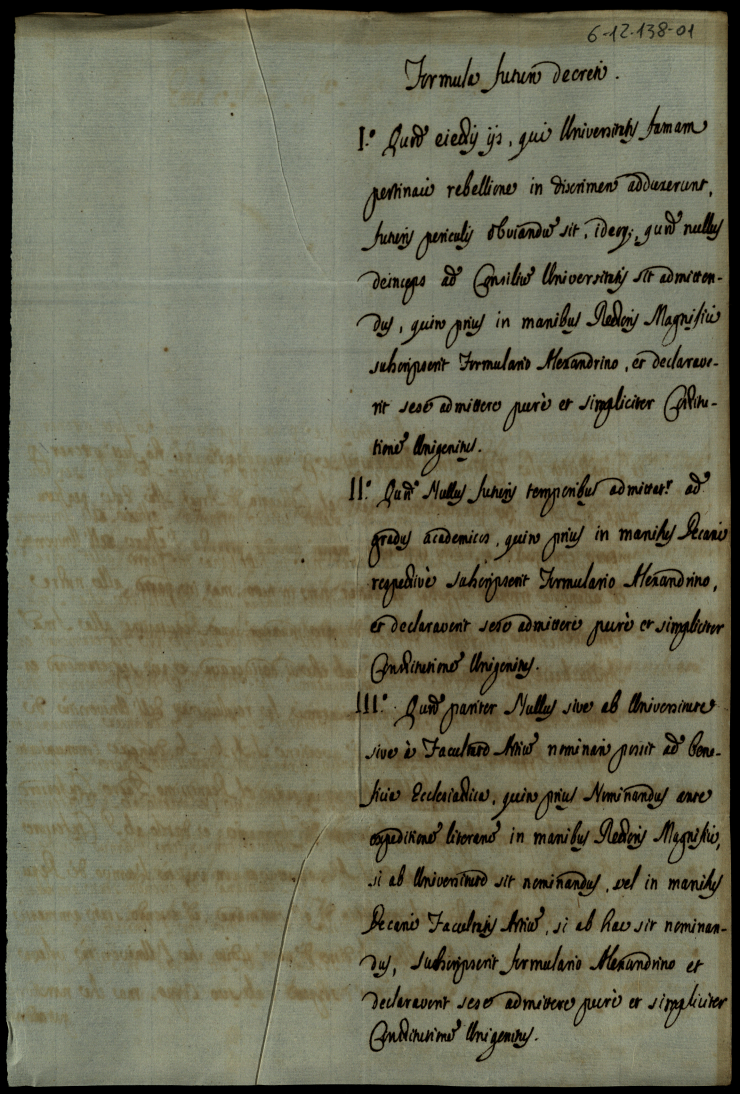 6-12-138-01
Formula futuri decreti.
I.° Quod eiectis ijs, qui Universitatis famam
pertinaci rebellione in discrimen adduxerunt,
futuris periculis obviandũ sit, ideoq; quod nullus
deinceps ad Consiliũ Universitatis sit admitten-
dus, quin prius in manibus Rectoris Magnifici
subscripserit Formulario Alexandrino, et declarave-
rit sese admittere purè et simpliciter Constitu-
tionẽ Unigenitus.
II.° Quod Nullus futuris temporibus admittat.r ad
gradus academicos, quin prius in manibus Decani
respectivè subscripserit Formulario Alexandrino,
et declaraverit sese admittere purè et simpliciter
Constitutionẽ Unigenitus.
III.° Quod pariter Nullus sive ab Universitate
sive à Facultate Artiũ nominari possit ad bene-
ficia Ecclesiastica, quin prius Nominandus ante
expeditionẽ literarũ in manibus Rectoris Magnifici,
si ab Universitate sit nominandus, vel in manibus
Decani Facultatis Artiũ, si ab hac sit nominan-
dus, subscripserit formulario Alexandrino et
declaraverit sese admittere purè et simpliciter
Constitutionẽ Unigenitus.